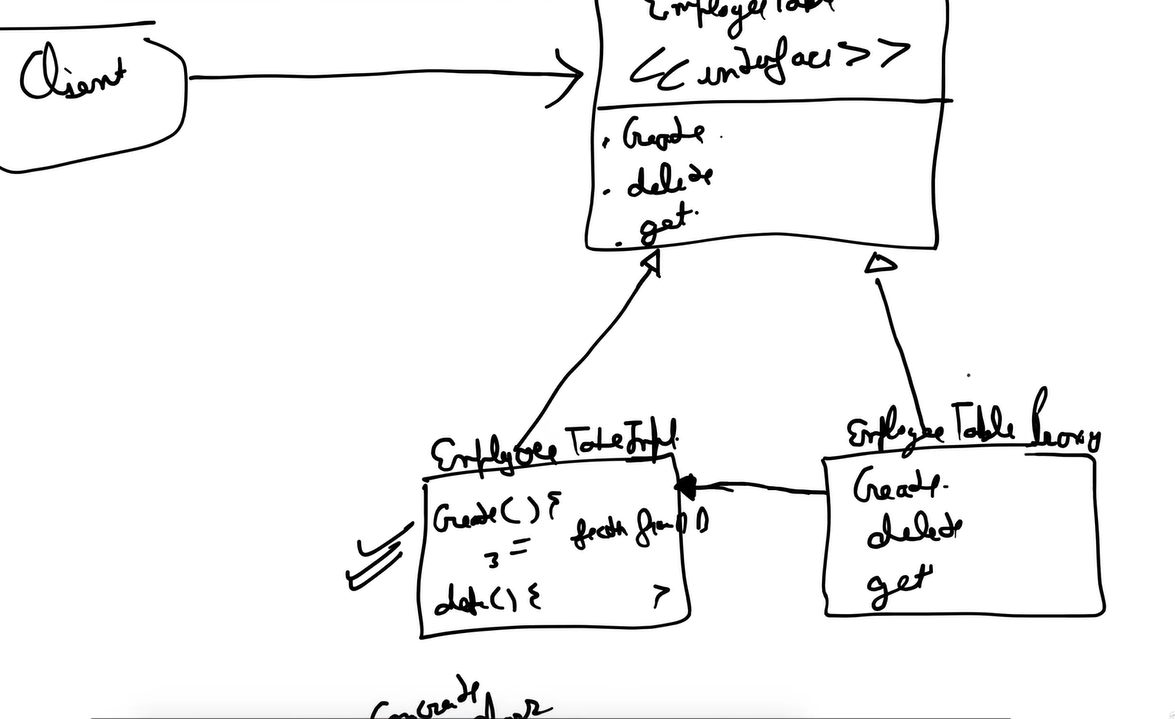 Client
EmployeeTable
<<interface>>
. Create.
. delete
. get.
Employee Table Impl.
Create() {
}
fetch from DB
delete() { }
Employee Table Proxy
Create.
delete
get
Concrete